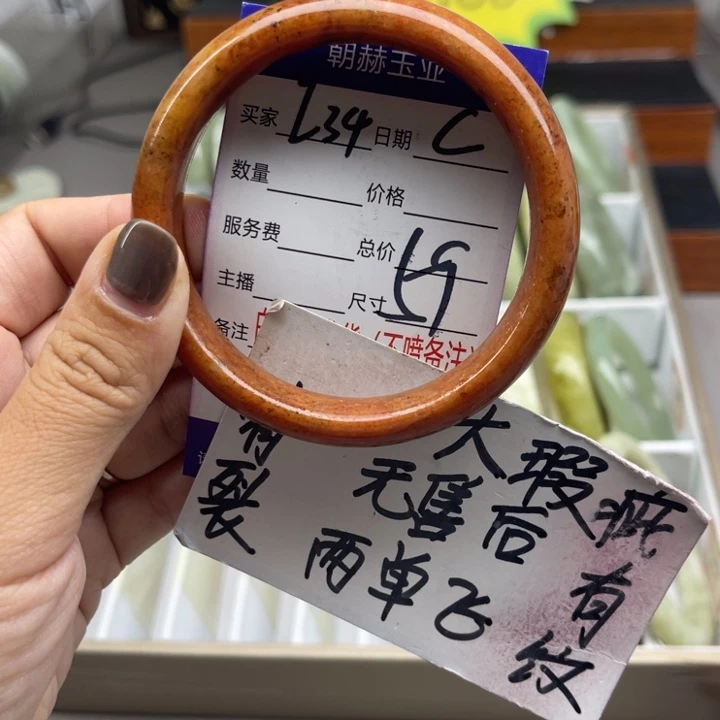 朝赫玉业
买家 134 日期 C
数量 价格
服务费 总价
主播 尺寸 59
备注 (不喷备注)
大瑕疵
有纹
有裂
无售后
两单飞